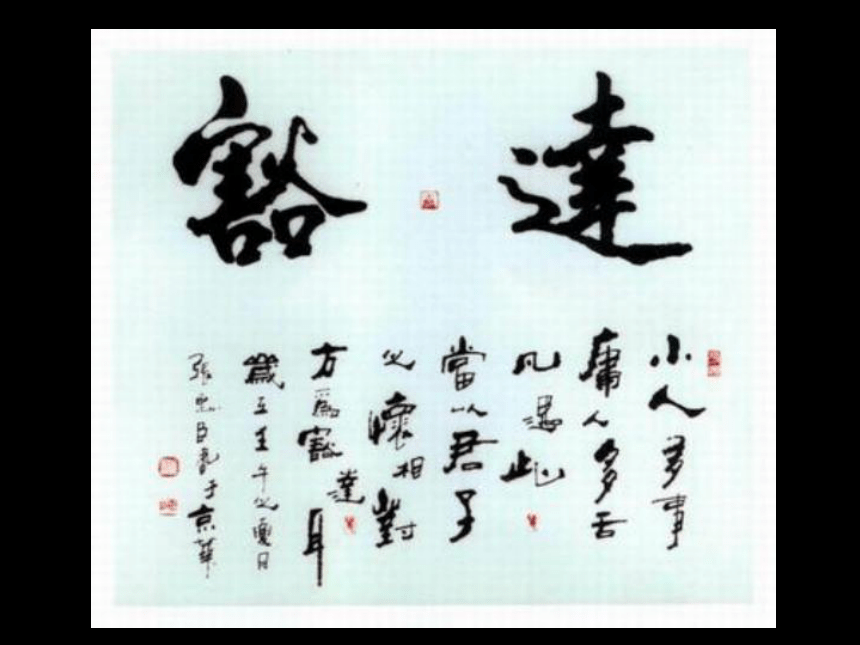 豁達
小人多事
庸人多舌
凡遇此
當以君子
之懷相對
方爲豁達耳
歲在壬午之夏日
張忠臣于京華